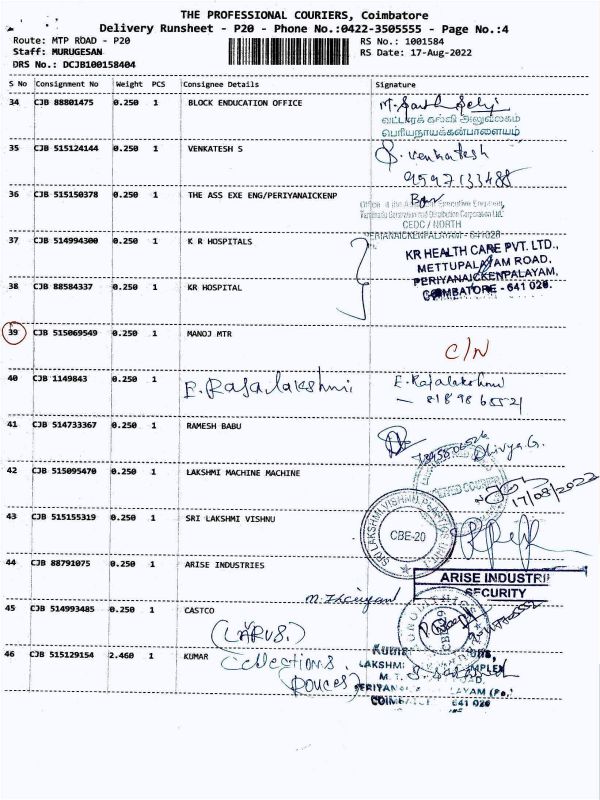 THE PROFESSIONAL COURIERS, Coimbatore
Delivery Runsheet - P20 - Phone No.:0422-3505555 - Page No.:4
Route: MTP RDAD - P20 RS No.: 1001584
Staff: MURUGESAN RS Date: 17-Aug-2022
DRS No.: DCJB100158404
S No Consignment No Weight PCS Consignee Details Signature
34 CJB 88801475 0.250 1 BLOCK ENDUCATION OFFICE
வட்டாரக் கல்வி அலுவலகம்
பெரியநாயக்கன்பாளையம்
35 CJB 515124144 0.250 1 VENKATESH S S. Venkatesh
9597133488
36 CJB 515150378 0.250 1 THE ASS EXE ENG/PERIYANAICKENP
CEDC / NORTH
PERIYANAICKENPALAYAM - 641020
37 CJB 514994300 0.250 1 K R HOSPITALS
KR HEALTH CARE PVT. LTD.,
METTUPALAYAM ROAD,
PERIYANAICKENPALAYAM,
COIMBATORE - 641 020.
38 CJB 88584337 0.250 1 KR HOSPITAL
39 CJB 515069549 0.250 1 MANOJ MTR
C/N
40 CJB 1149843 0.250 1 E. Rajalakshmi E. Rajalakshmi
41 CJB 514733367 0.250 1 RAMESH BABU
Dhivya.G.
42 CJB 515095470 0.250 1 LAKSHMI MACHINE MACHINE
17/08/2022
43 CJB 515155319 0.250 1 SRI LAKSHMI VISHNU
SRI LAKSHMI VISHNU PLASTICS
CBE-20
44 CJB 88791075 0.250 1 ARISE INDUSTRIES
ARISE INDUSTRI
SECURITY
45 CJB 514993485 0.250 1 CASTCO
46 CJB 515129154 2.460 1 KUMAR Collections
LAKSHMI COMPLEX
COIMBATORE 641 020